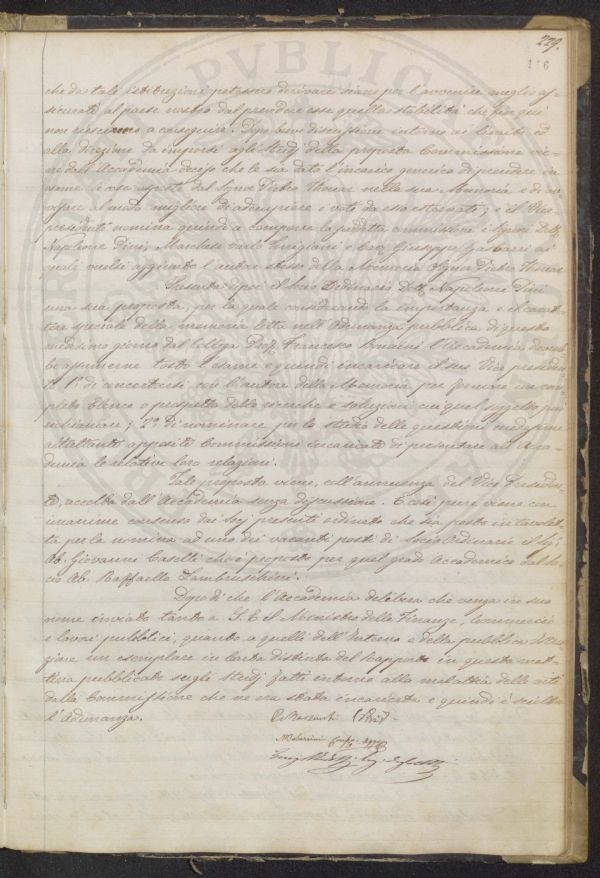 229.
116
che da tale istituzione potessero derivare siano per l'avvenire meglio as-
sicurati al paese nostro dal prendere esse quella stabilità che fin quì
non riescirono a conseguire. Dopo breve discussione intorno ai limiti ed
alla direzione da imporsi agli studj della proposta Commissione vie-
ne dall'Accademia deciso che le sia dato l'incarico generico di prendere in
esame le cose esposte dal Signor Pietro Thouar nella sua Memoria e di av-
visare al modo migliore di adempiere i voti da esso esternati; e il Vice
presidente nomina quindi a comporre la predetta commissione i Signori Dott.
Napoleone Pini, Marchese Carlo Torrigiani e Giuseppe ai
quali vuolsi aggiunto l'autore stesso della Memoria Signor Pietro Thouar
Presenta dipoi il Socio Ordinario Dott. Napoleone Pini
una sua proposta, per la quale considerando la importanza e il carat-
tere speciale della memoria letta nell'Adunanza pubblica di questo
medesimo giorno dal Collega Dott. Francesco l'Accademia dovreb-
be assumerne tosto l'esame e quindi incaricare il suo Vice presiden-
te 1.° di concertarsi con l'autore della Memoria per formare un com-
pleto Elenco o prospetto delle ricerche e soluzioni cui quel soggetto può
richiamare; 2.° di nominare per lo studio delle questioni medesime
altrettante apposite Commissioni incaricate di presentare all'Acca-
demia le relative loro relazioni.
Tale proposta viene, coll'annuenza del Vice Presiden-
te, accolta dall'Accademia senza discussione. E così pure viene con
unanime consenso dai Socj presenti ordinato che sia posto in tavolet-
ta per la nomina ad uno dei vacanti posti di Socio Ordinario il Sig.
Ab. Giovanni Caselli che è proposto per quel grado Accademico dal So-
cio Ab. Raffaello Lambruschini.
Dopo di che l'Accademia delibera che venga in suo
nome inviato tanto a S. E. il Ministro delle Finanze, Commercio
e lavori pubblici, quanto a quelli dell'Interno e della pubblica Istru-
zione un esemplare in Carta distinta del Rapporto in questa mat-
tina pubblicato sugli studj fatti intorno alla malattia delle viti
dalla Commissione che ne era stata incaricata e quindi è sciolta
l'Adunanza.